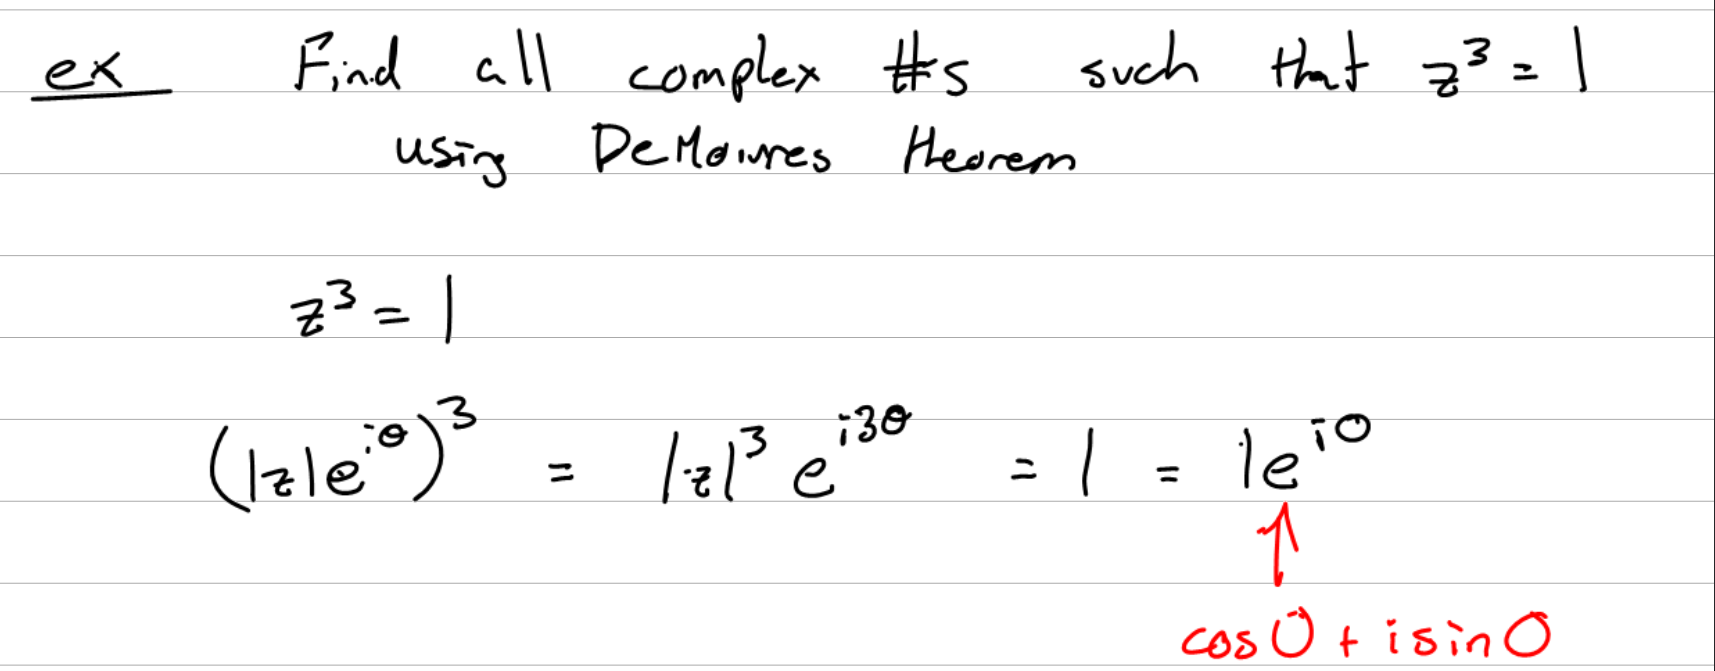 ex Find all complex #s such that z³ = 1
using DeMoivres theorem
z³ = 1
(|z|e^{iθ})³ = |z|³ e^{i3θ} = 1 = 1e^{i0}
↑
cos 0 + i sin 0